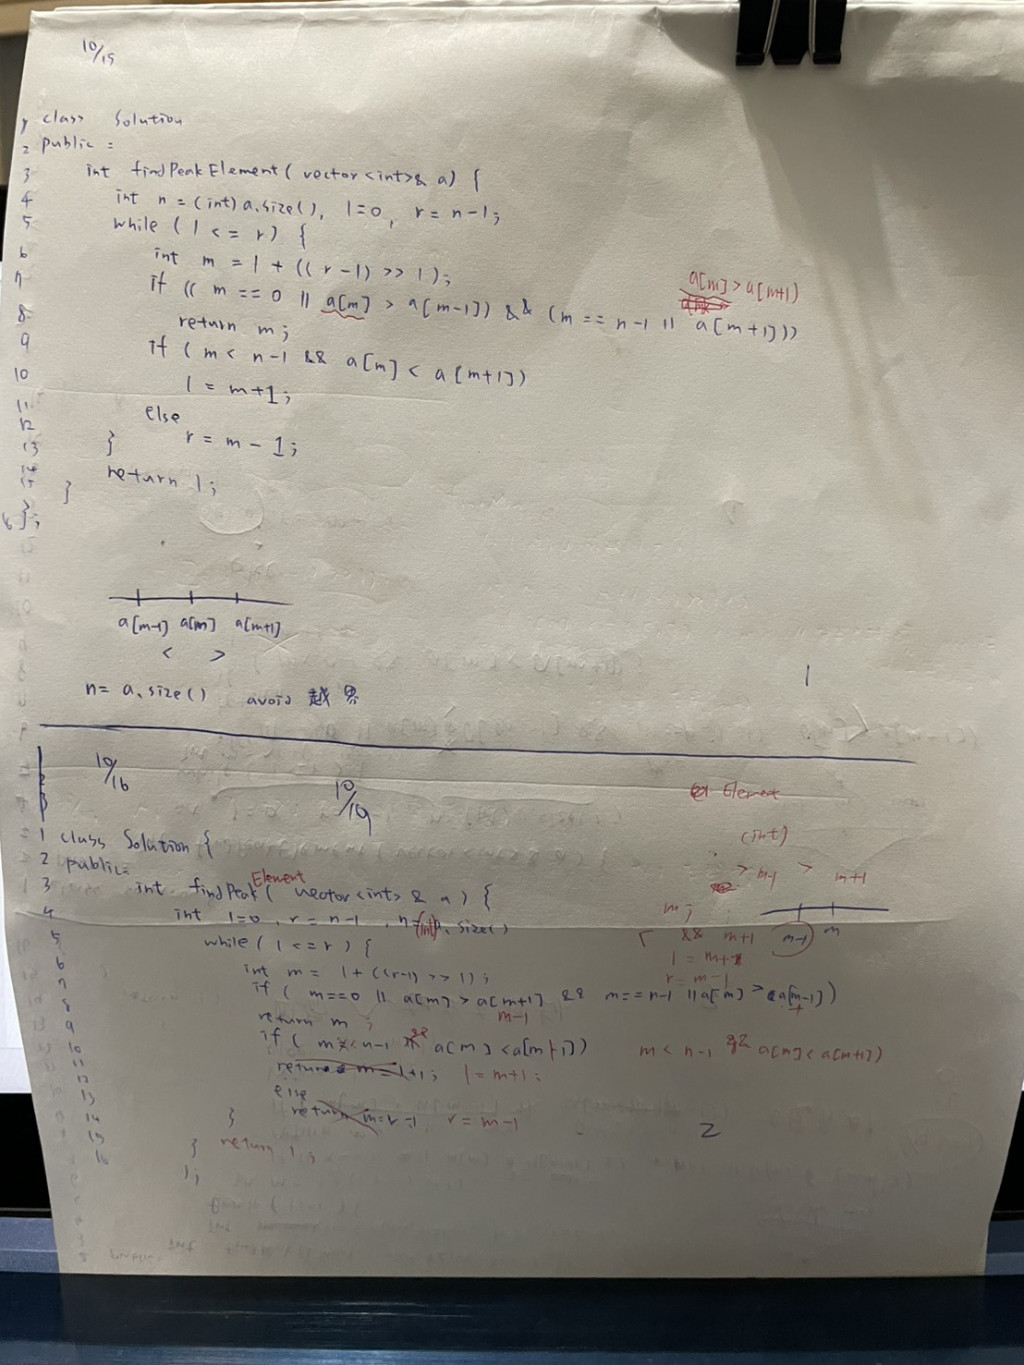 10/15
1 class Solution
2 public :
3 int findPeakElement( vector<int>& a) {
4 int n = (int) a.size(), l=0, r = n-1;
5 while ( l <= r) {
6 int m = l + ((r-l) >> 1);
a[m] > a[m+1]
7 if (( m == 0 || a[m] > a[m-1]) && (m == n-1 || a[m+1]))
8 return m;
9 if ( m < n-1 && a[m] < a[m+1])
10 l = m+1;
11 else
12 r = m - 1;
13 }
14 return l;
15 }
16 };
a[m-1] a[m] a[m+1]
< >
n= a.size() avoid 越界
1
10/16
10/19
Element
(int)
> m-1 > m+1
1 class Solution {
2 public:
Element
3 int findPeak( vector<int> & a) {
m;
4 int l=0, r = n-1, n=(int)a.size()
&& m+1 m-1 m
5 while ( l <= r) {
l = m+1
6 int m = l + ((r-l) >> 1);
r = m-1
7 if ( m==0 || a[m] > a[m+1] && m == n-1 || a[m] > a[m-1])
m-1
8 return m ;
9 if ( m < n-1 && a[m] < a[m+1]) m < n-1 && a[m] < a[m+1])
10 return m = l+1; l = m+1;
11 else
12 return m=r-1 r = m-1
13 }
14 return l;
15 }
16 };
2